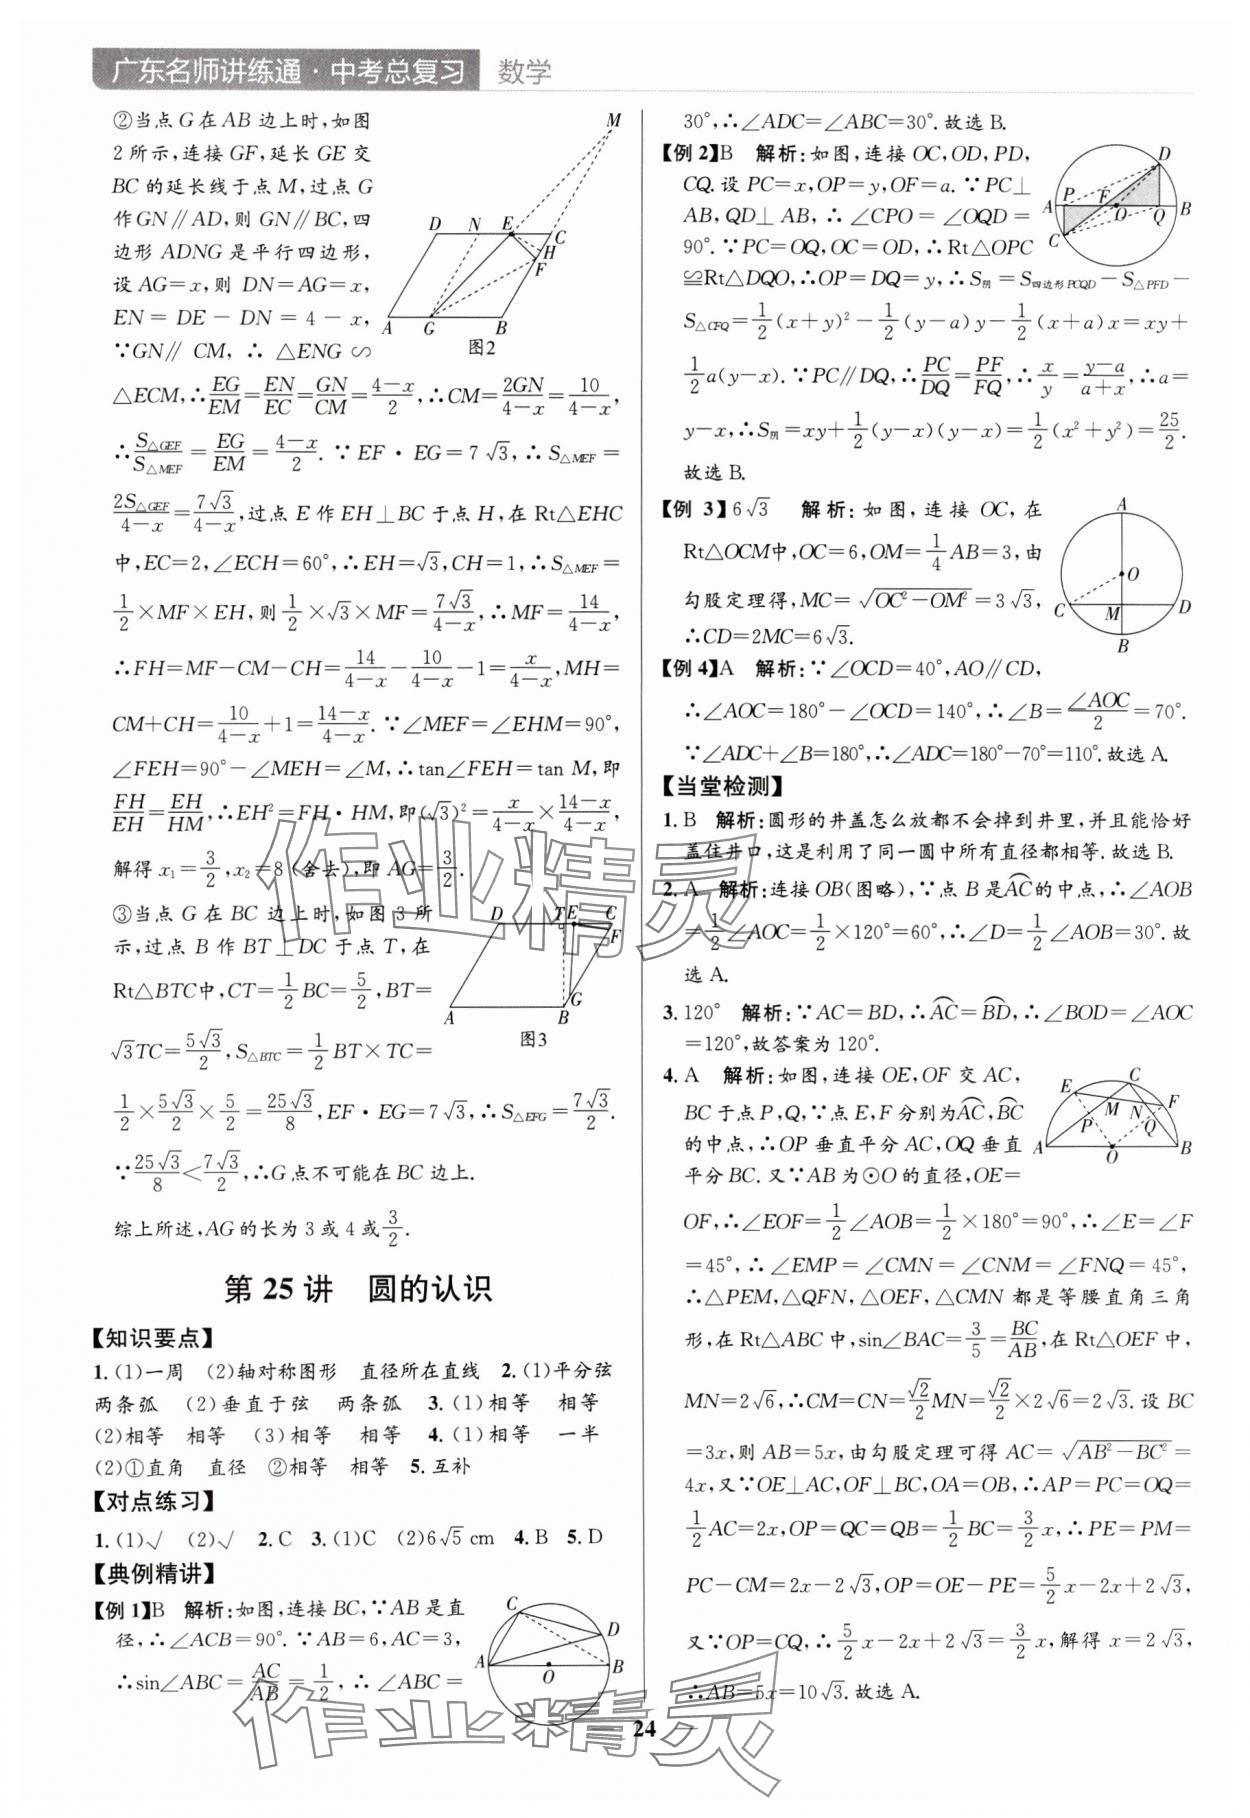 广东名师讲练通·中考总复习 数学
②当点G在AB边上时,如图
2所示,连接GF,延长GE交
BC的延长线于点M,过点G
作GN∥AD,则GN∥BC,四
边形ADNG是平行四边形,
设AG=x,则DN=AG=x,
EN=DE-DN=4-x,
∵GN∥CM,∴△ENG∽
△ECM,∴EG/EM=EN/EC=GN/CM=(4-x)/2,∴CM=2GN/(4-x)=10/(4-x),
∴S△GEF/S△MEF=EG/EM=(4-x)/2.∵EF·EG=7√3,∴S△MEF=
2S△GEF/(4-x)=7√3/(4-x),过点E作EH⊥BC于点H,在Rt△EHC
中,EC=2,∠ECH=60°,∴EH=√3,CH=1,∴S△MEF=
1/2×MF×EH,则1/2×√3×MF=7√3/(4-x),∴MF=14/(4-x),
∴FH=MF-CM-CH=14/(4-x)-10/(4-x)-1=x/(4-x),MH=
CM+CH=10/(4-x)+1=(14-x)/(4-x).∵∠MEF=∠EHM=90°,
∠FEH=90°-∠MEH=∠M,∴tan∠FEH=tan M,即
FH/EH=EH/HM,∴EH²=FH·HM,即(√3)²=x/(4-x)×(14-x)/(4-x),
解得x₁=3/2,x₂=8(舍去),即AG=3/2.
③当点G在BC边上时,如图3所
示,过点B作BT⊥DC于点T,在
Rt△BTC中,CT=1/2BC=5/2,BT=
√3TC=5√3/2,S△BTC=1/2BT×TC=
1/2×5√3/2×5/2=25√3/8,EF·EG=7√3,∴S△EFG=7√3/2.
∵25√3/8<7√3/2,∴G点不可能在BC边上.
综上所述,AG的长为3或4或3/2.
M
D N E C
H
F
A G B
图2
D T E C
F
G
A B
图3
第25讲 圆的认识
【知识要点】
1.(1)一周 (2)轴对称图形 直径所在直线 2.(1)平分弦
两条弧 (2)垂直于弦 两条弧 3.(1)相等 相等
(2)相等 相等 (3)相等 相等 4.(1)相等 一半
(2)①直角 直径 ②相等 相等 5.互补
【对点练习】
1.(1)√ (2)√ 2.C 3.(1)C (2)6√5 cm 4.B 5.D
【典例精讲】
【例1】B 解析:如图,连接BC,∵AB是直
径,∴∠ACB=90°.∵AB=6,AC=3,
∴sin∠ABC=AC/AB=1/2,∴∠ABC=
C
D
A O B
30°,∴∠ADC=∠ABC=30°.故选B.
【例2】B 解析:如图,连接OC,OD,PD,
CQ.设PC=x,OP=y,OF=a.∵PC⊥
AB,QD⊥AB,∴∠CPO=∠OQD=
90°.∵PC=OQ,OC=OD,∴Rt△OPC
≌Rt△DQO,∴OP=DQ=y,∴S阴=S四边形PCQD-S△PFD-
S△CFQ=1/2(x+y)²-1/2(y-a)y-1/2(x+a)x=xy+
1/2a(y-x).∵PC∥DQ,∴PC/DQ=PF/FQ,∴x/y=(y-a)/(a+x),∴a=
y-x,∴S阴=xy+1/2(y-x)(y-x)=1/2(x²+y²)=25/2.
故选B.
D
P F
A O Q B
C
【例3】6√3 解析:如图,连接OC,在
Rt△OCM中,OC=6,OM=1/4AB=3,由
勾股定理得,MC=√(OC²-OM²)=3√3,
∴CD=2MC=6√3.
A
O
C M D
B
【例4】A 解析:∵∠OCD=40°,AO∥CD,
∴∠AOC=180°-∠OCD=140°,∴∠B=∠AOC/2=70°.
∵∠ADC+∠B=180°,∴∠ADC=180°-70°=110°.故选A.
【当堂检测】
1.B 解析:圆形的井盖怎么放都不会掉到井里,并且能恰好
盖住井口,这是利用了同一圆中所有直径都相等.故选B.
2.A 解析:连接OB(图略),∵点B是A͡C的中点,∴∠AOB
=1/2∠AOC=1/2×120°=60°,∴∠D=1/2∠AOB=30°.故
选A.
3.120° 解析:∵AC=BD,∴A͡C=B͡D,∴∠BOD=∠AOC
=120°,故答案为120°.
4.A 解析:如图,连接OE,OF交AC,
BC于点P,Q,∵点E,F分别为A͡C,B͡C
的中点,∴OP垂直平分AC,OQ垂直
平分BC.又∵AB为⊙O的直径,OE=
OF,∴∠EOF=1/2∠AOB=1/2×180°=90°,∴∠E=∠F
=45°,∴∠EMP=∠CMN=∠CNM=∠FNQ=45°,
∴△PEM,△QFN,△OEF,△CMN都是等腰直角三角
形,在Rt△ABC中,sin∠BAC=3/5=BC/AB,在Rt△OEF中,
MN=2√6,∴CM=CN=√2/2MN=√2/2×2√6=2√3.设BC
=3x,则AB=5x,由勾股定理可得AC=√(AB²-BC²)=
4x,又∵OE⊥AC,OF⊥BC,OA=OB,∴AP=PC=OQ=
1/2AC=2x,OP=QC=QB=1/2BC=3/2x,∴PE=PM=
PC-CM=2x-2√3,OP=OE-PE=5/2x-2x+2√3,
又∵OP=CQ,∴5/2x-2x+2√3=3/2x,解得x=2√3,
∴AB=5x=10√3.故选A.
C
E F
M N
P Q
A O B
24
作业精灵
作业精灵